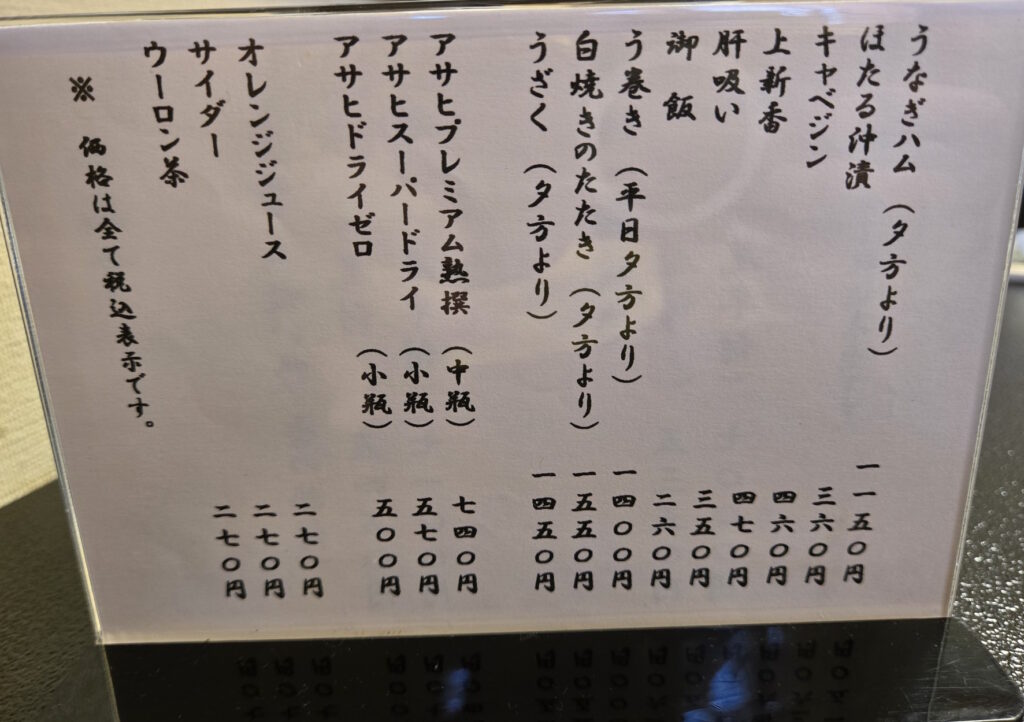 うなぎハム（夕方より） 一一五〇円
ほたる沖漬 三六〇円
キャベジン 四六〇円
上新香 四七〇円
肝吸い 三五〇円
御飯 二六〇円
う巻き（平日夕方より） 一四〇〇円
白焼きのたたき（夕方より） 一五五〇円
うざく（夕方より） 一四五〇円
アサヒプレミアム熟撰（中瓶） 七四〇円
アサヒスーパードライ（小瓶） 五七〇円
アサヒドライゼロ（小瓶） 五〇〇円
オレンジジュース 二七〇円
サイダー 二七〇円
ウーロン茶 二七〇円
※ 価格は全て税込表示です。